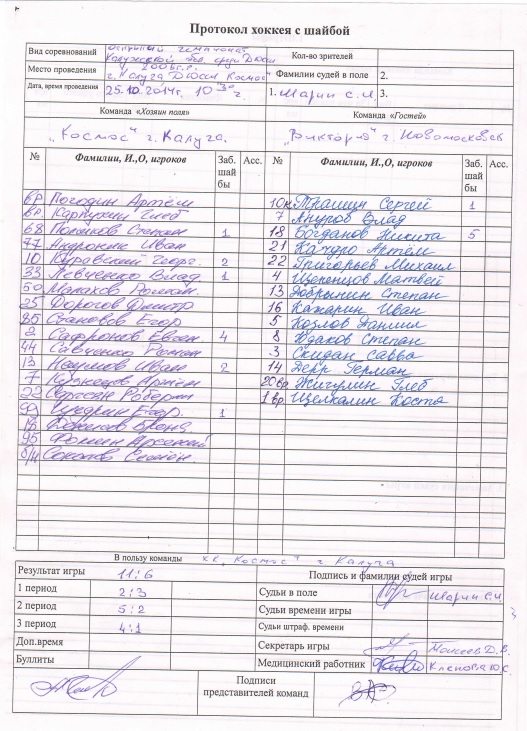 Протокол хоккея с шайбой
Вид соревнований открытый чемпионат Калужской обл. среди Дюсш 2006 г.р. Кол-во зрителей
Место проведения г. Калуга Дюсш Космос Фамилии судей в поле 2.
Дата, время проведения 25.10.2014г. 10 30 г. 1. Шарин С.И. 3.
Команда «Хозяин поля» Команда «Гостей»
„Космос" г. Калуга. „Виктория" г. Новомосковск
№ Фамилии, И.,О, игроков Заб. шай бы Асс. № Фамилии, И.,О, игроков Заб. шай бы Асс.
вр Погодин Артём 10к Трашин Сергей 1
вр. Карпухин Глеб 7 Ануров Влад
68 Поляков Степан 1 18 Богданов Никита 5
77 Андроник Иван 21 Качдро Артём
10 Куровский Георг. 2 22 Григорьев Михаил
33 Левченко Влад 1 4 Щеренцов Матвей
50 Малахов Роман 13 Добрынин Степан
25 Дорогов Дмитр 16 Кажарин Иван
85 Становов Егор 5 Козлов Даниил
2 Сафронов Евген. 4 8 Юдаков Степан
44 Савченко Роман 3 Скидан Савва
13 Наумов Иван 2 14 Дерр Герман
7 Кузнецов Артём 20вр Жигулин Глеб
22 Саргсян Роберт 1 вр. Щелкалин Костя
99 Щедрин Егор. 1
18
95 Фомин Арсений
б/н Соколов Семён
В пользу команды хк „Космос" г Калуга
Результат игры 11:6 Подпись и фамилии судей игры
1 период 2:3 Судьи в поле Шарин С.И.
2 период 5:2 Судьи времени игры
3 период 4:1 Судьи штраф. времени
Доп.время Секретарь игры Моисеев Д.В.
Буллиты Медицинский работник Кленова Ю.С.
Подписи представителей команд